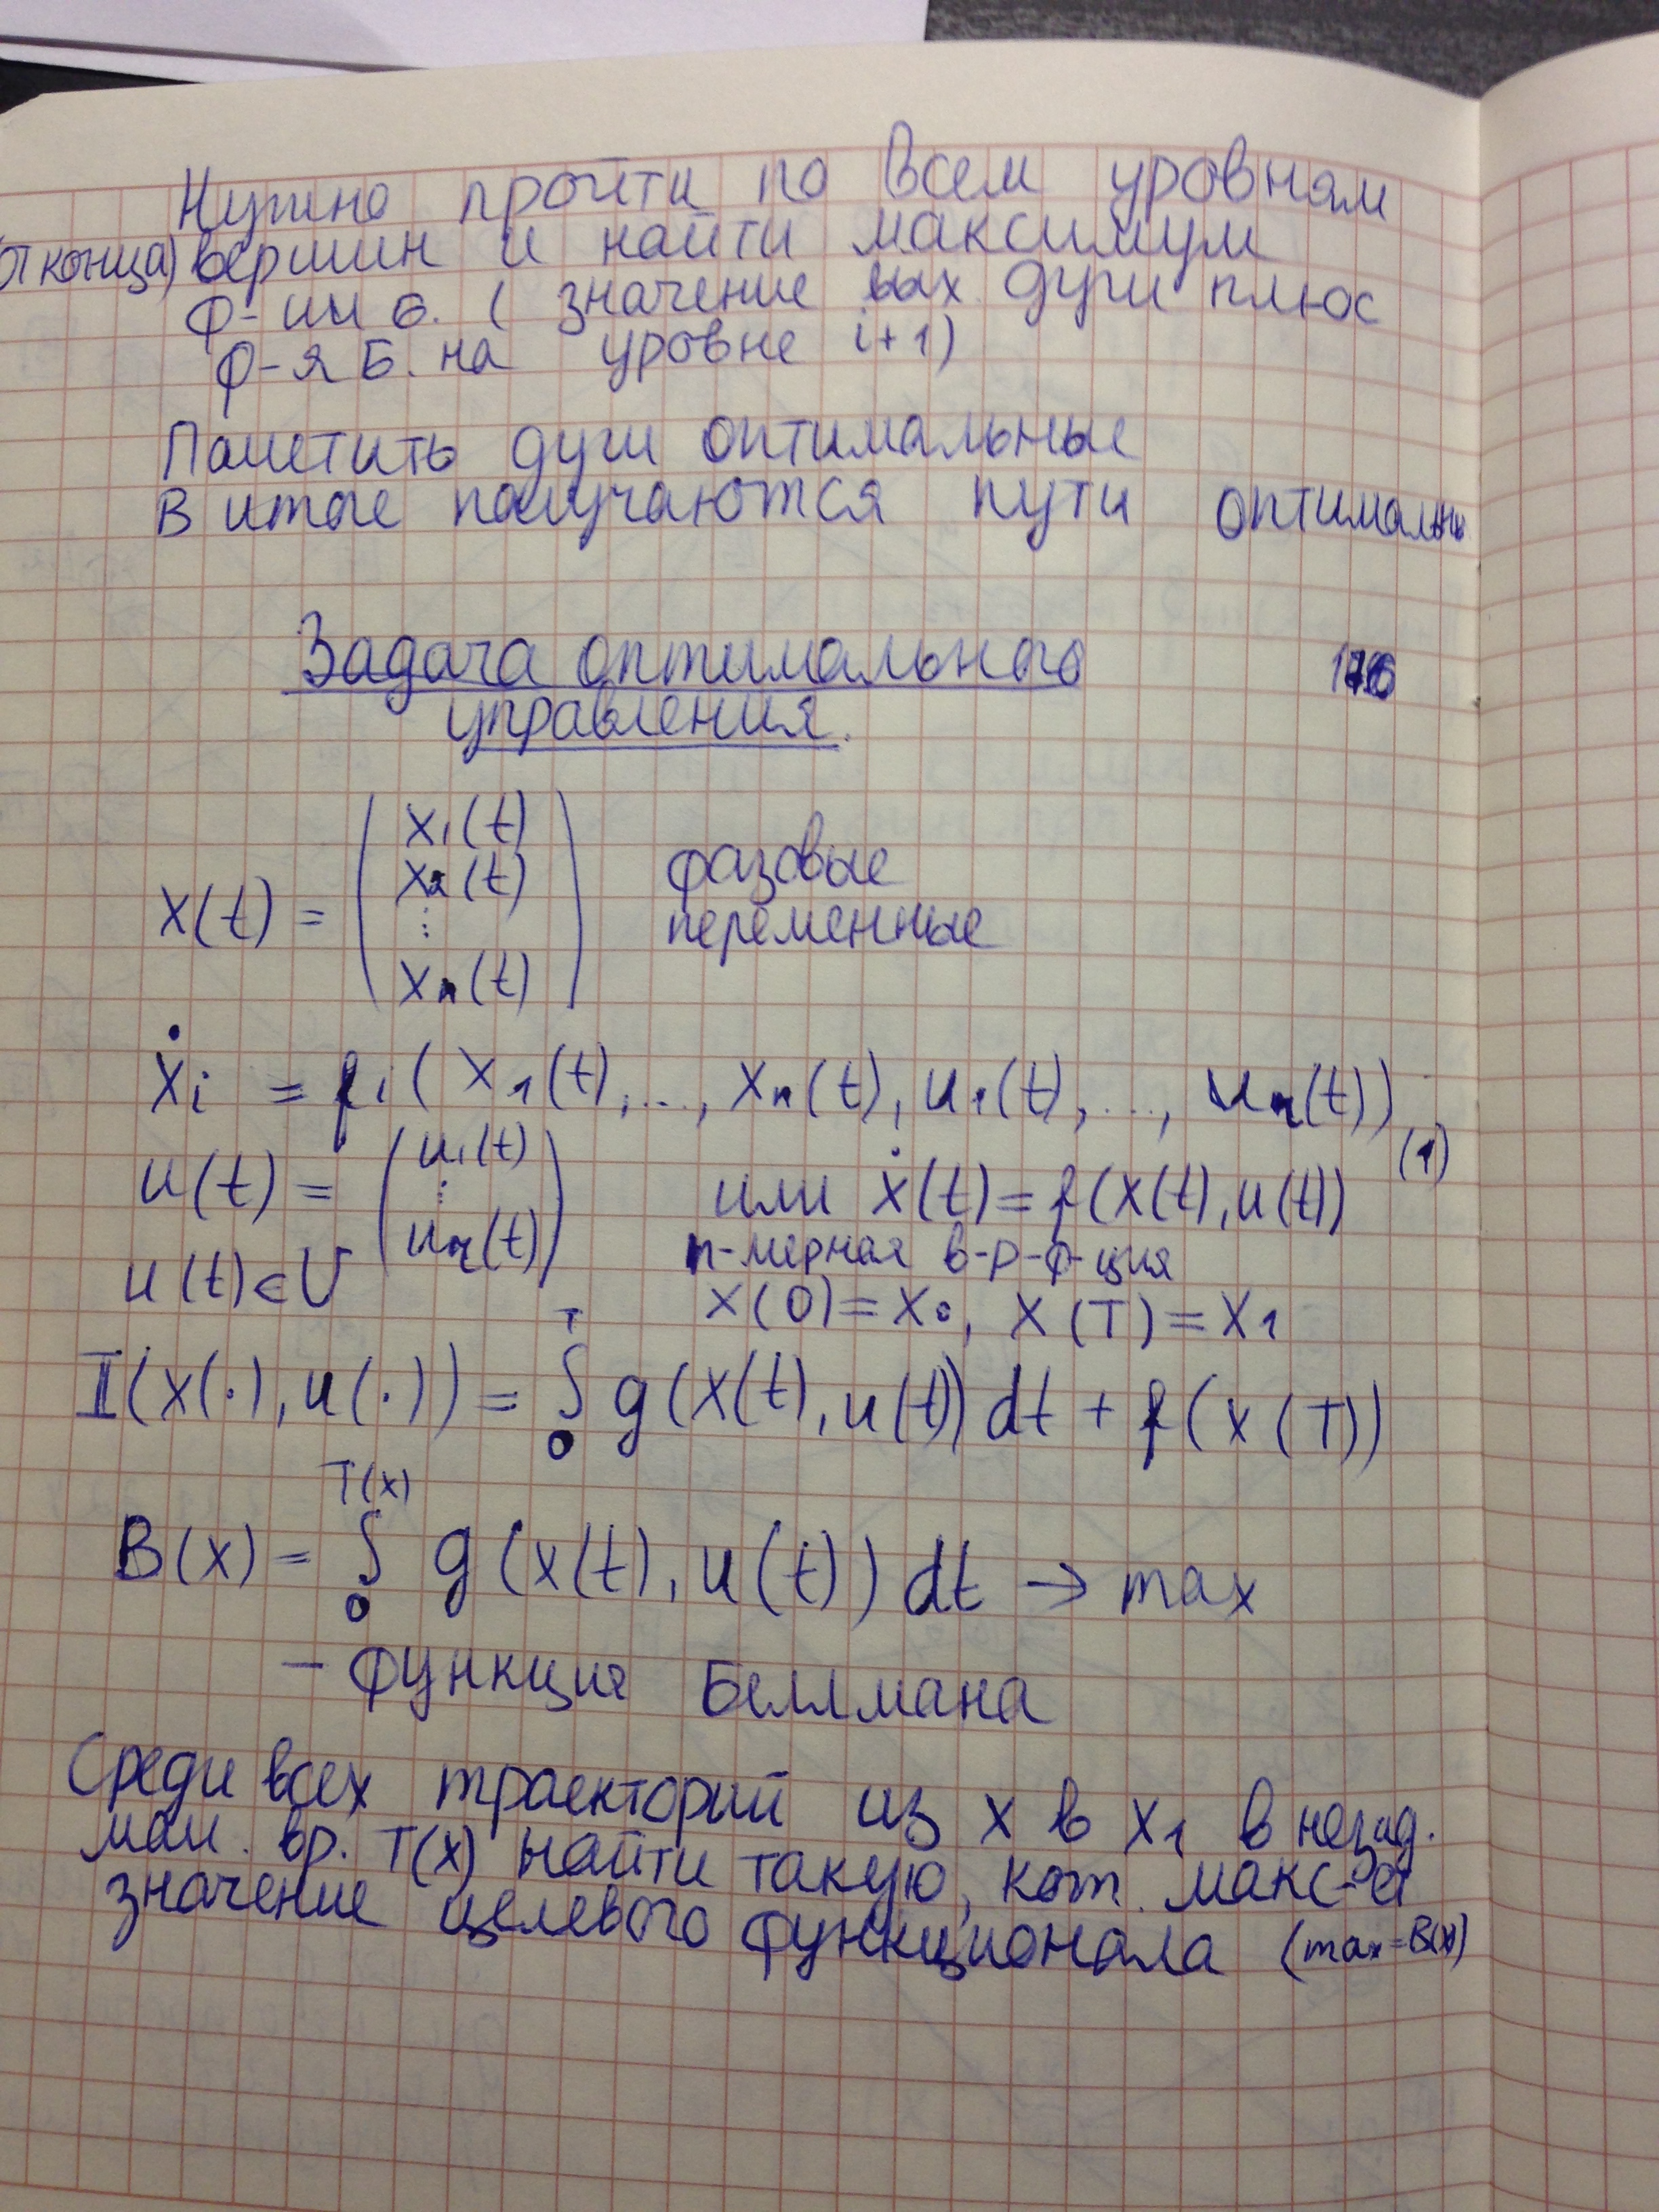 Нужно пройти по всем уровням
(от конца) вершин и найти максимум
ф-ии Б. ( значение вых. дуги плюс
ф-я Б. на уровне i+1)
Пометить дуги оптимальные
В итоге получаются пути оптимальн
Задача оптимального
управления.
x(t) = ( x₁(t) x₂(t) ⋮ xₙ(t) ) фазовые переменные
ẋᵢ = fᵢ( x₁(t), ..., xₙ(t), u₁(t), ..., uᵣ(t)) (1)
u(t) = ( u₁(t) ⋮ uᵣ(t) ) или ẋ(t) = f(x(t), u(t))
n-мерная в-р-ф-ция
u(t) ∈ U x(0) = x₀, x(T) = x₁
I(x(·), u(·)) = ∫₀ᵀ g(x(t), u(t)) dt + f(x(T))
B(x) = ∫₀ᵀ⁽ˣ⁾ g(x(t), u(t)) dt → max
– функция Беллмана
Среди всех траекторий из x в x₁ в незад.
мом. вр. T(x) найти такую, кот. макс-ет
значение целевого функционала (max = B(x)